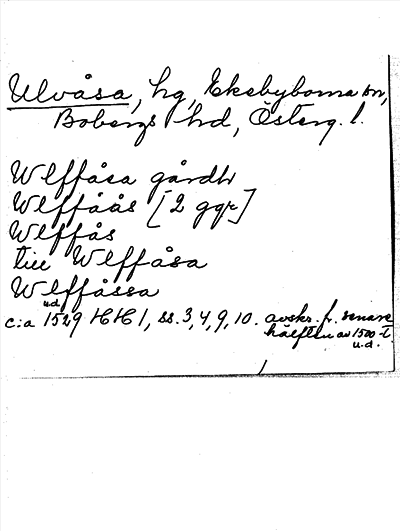 Ulvåsa, hg, Ekebyborna sn,
Bobergs hd, Österg. l.
Wlffåsa gårdh
Wlffåås [2 ggr]
Wlffås
till Wlffåsa
Wlffåssa
u.d.
c:a 1529 HH 1, ss. 3, 4, 9, 10. avskr. fr. senare
hälften av 1500-t.
u.d.